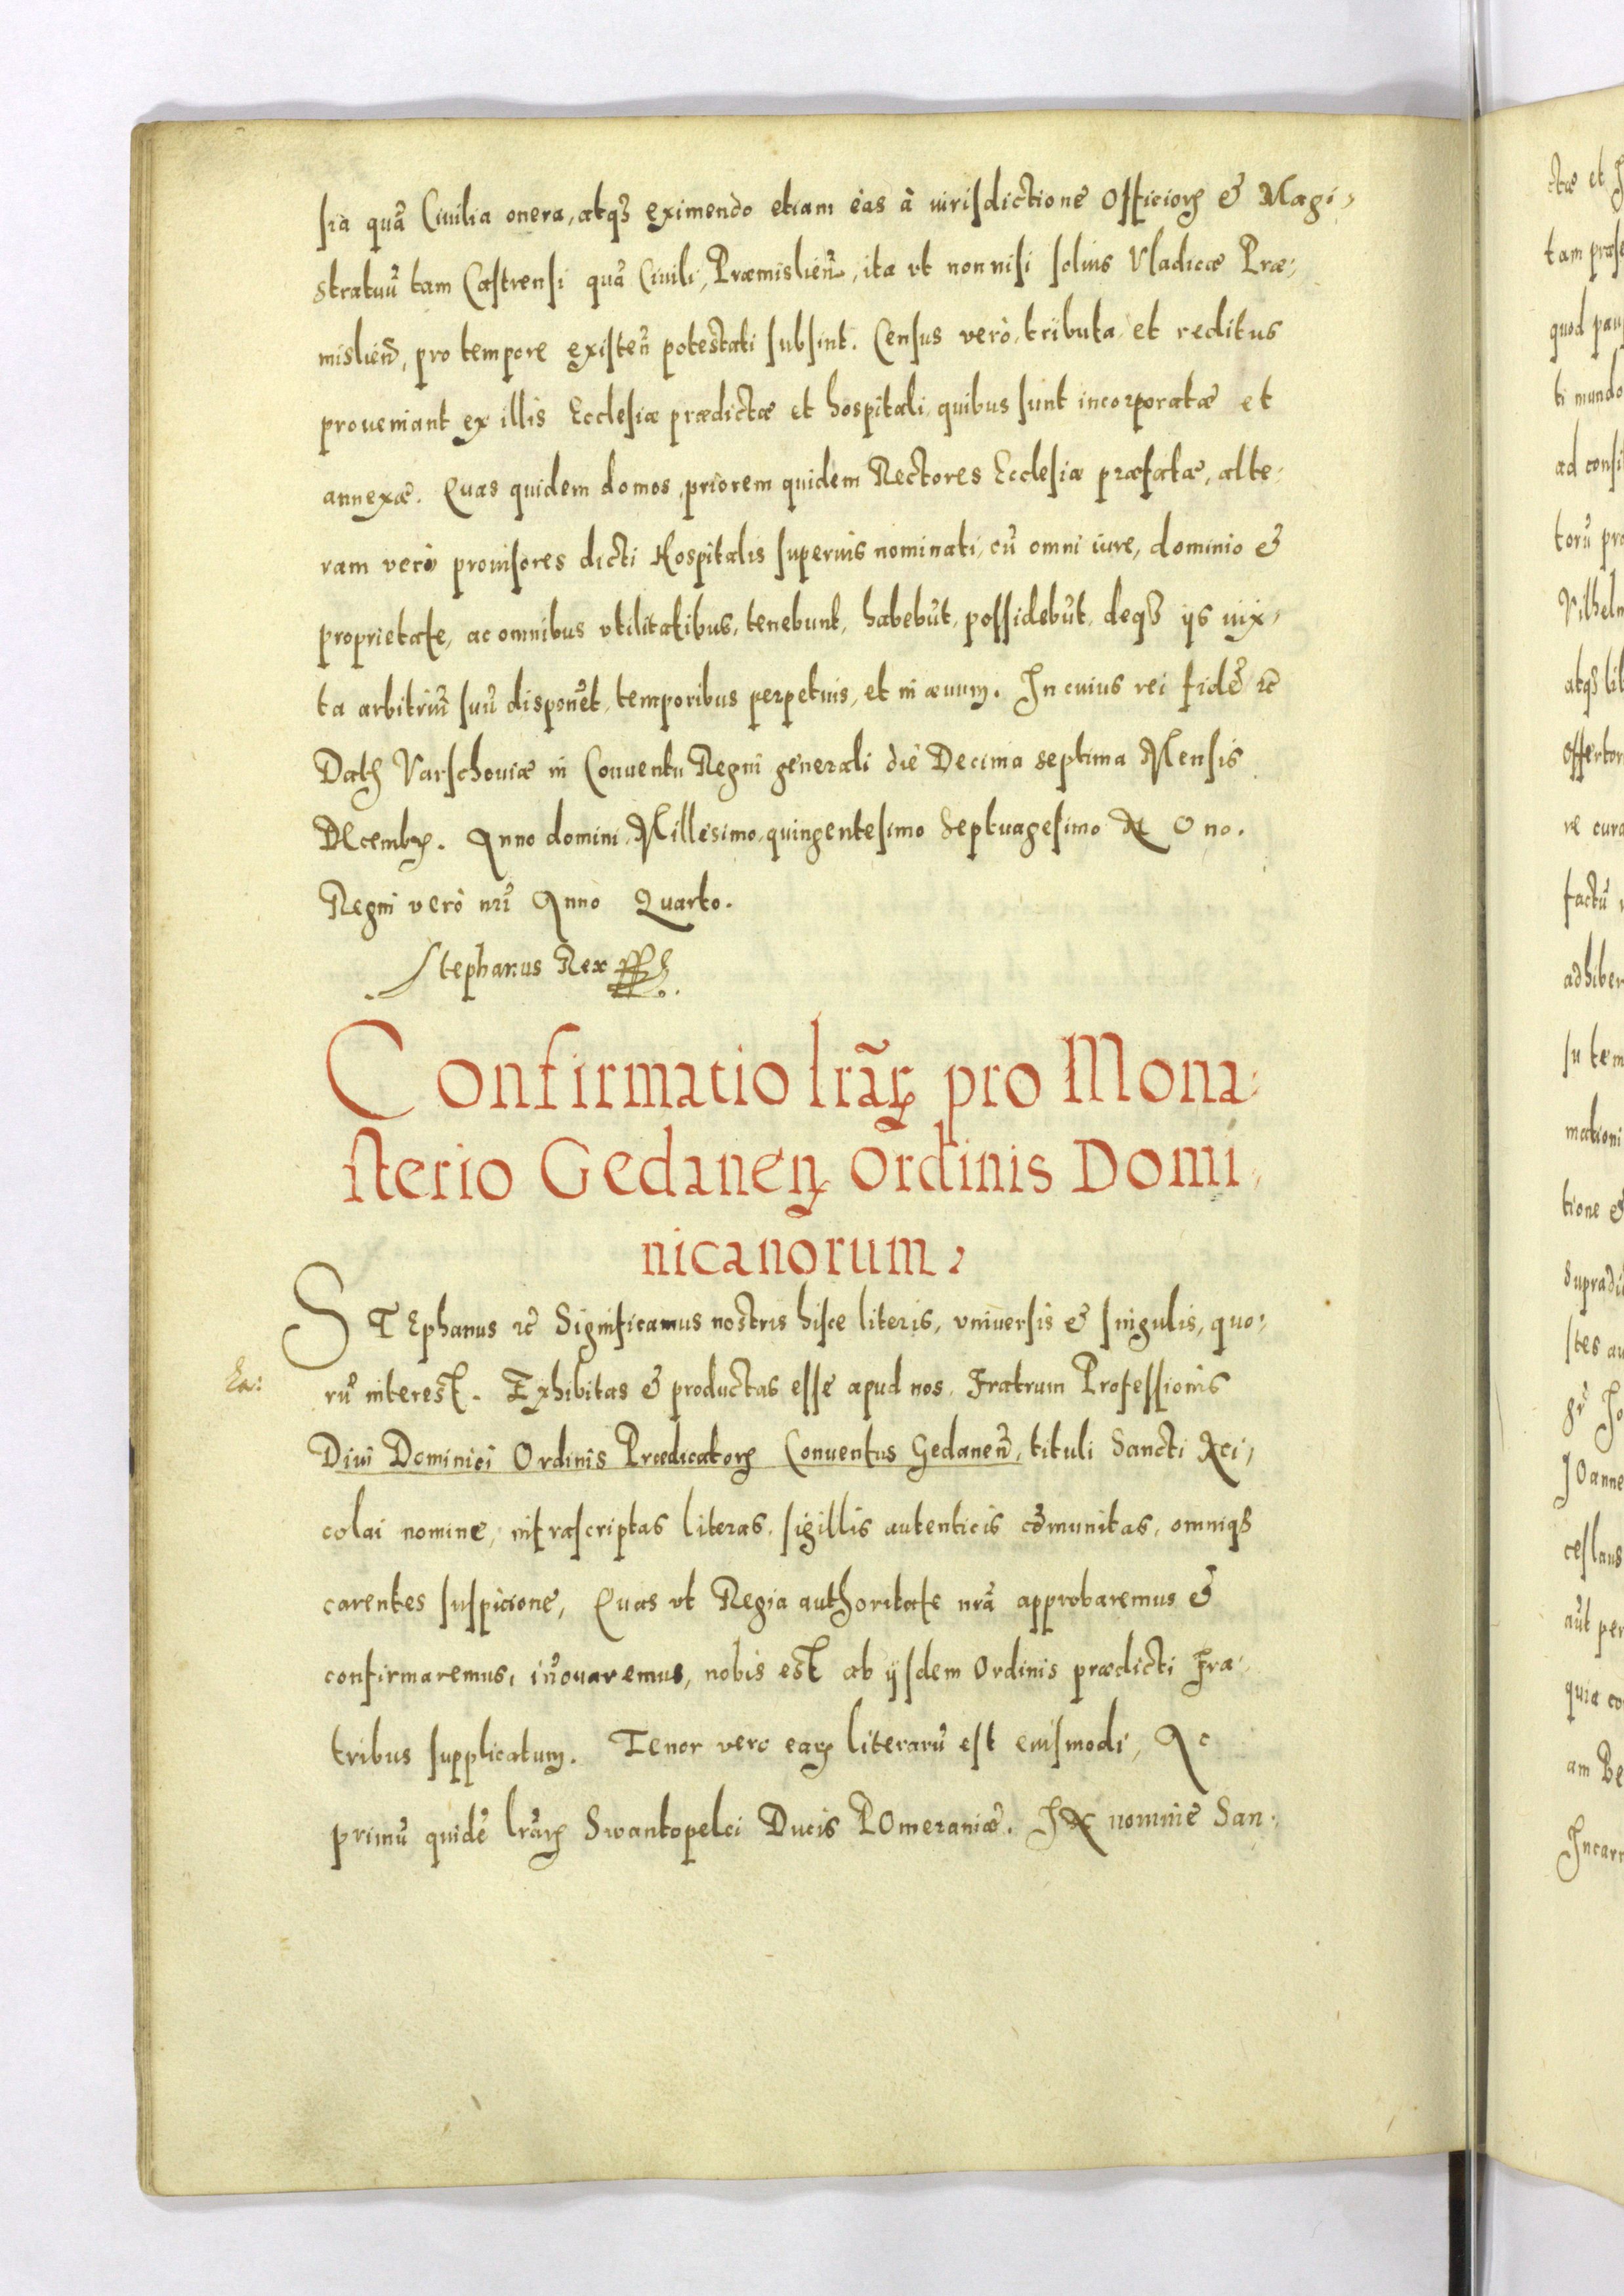 sia quã Ciuilia onera, atqꝫ eximendo etiam eas à iurisdictione Officioꝝ & Magi-
stratuũ tam Castrensi quã Ciuili, Præmislieñ, ita vt non nisi solius Vladicæ Præ-
mislieñ, pro tempore existeñ potestati subsint. Census verò, tributa et reditus
proueniant ex illis Ecclesiæ prædictæ et hospitali, quibus sunt incorporatæ et
annexæ. Quas quidem domos, priorem quidem Rectores Ecclesiæ præfatæ, alte-
ram verò prouisores dicti Hospitalis superius nominati, cũ omni iure, dominio &
proprietate, ac omnibus vtilitatibus, tenebunt, habebũt, possidebũt, deqꝫ ijs iux-
ta arbitriũ suũ disponẽt, temporibus perpetuis, et in æuum. In cuius rei fidẽ ꝛc̃
Datꝫ Varschouiæ in Conuentu Regni generali die Decima septima Mensis
DEcembꝝ. Anno domini Millesimo quingentesimo Septuagesimo NOno.
Regni verò nrĩ Anno Quarto.
Stephanus Rex
Confirmatio lrãꝝ pro Mona-
sterio Gedaneñ Ordinis Domi-
nicanorum.
STEphanus ꝛc̃ Significamus nostris hisce literis, vniuersis & singulis, quo-
rũ interest. Exhibitas & productas esse apud nos, Fratrum Professionis
Diui Dominici Ordinis Prædicatoꝝ Conuentus Gedaneñ, tituli Sancti Nei-
colai nomine, infrascriptas literas, sigillis autenticis cõmunitas, omniqꝫ
carentes suspicione, Quas vt Regia authoritate nrã approbaremus &
confirmaremus, iñouaremus, nobis est ab ijsdem Ordinis prædicti Fra-
tribus supplicatum. Tenor vero eaꝝ literarũ est eiusmodi, Ac
primũ quidẽ lrãꝝ Swantopelci Ducis POmeraniæ. IN nomine San-